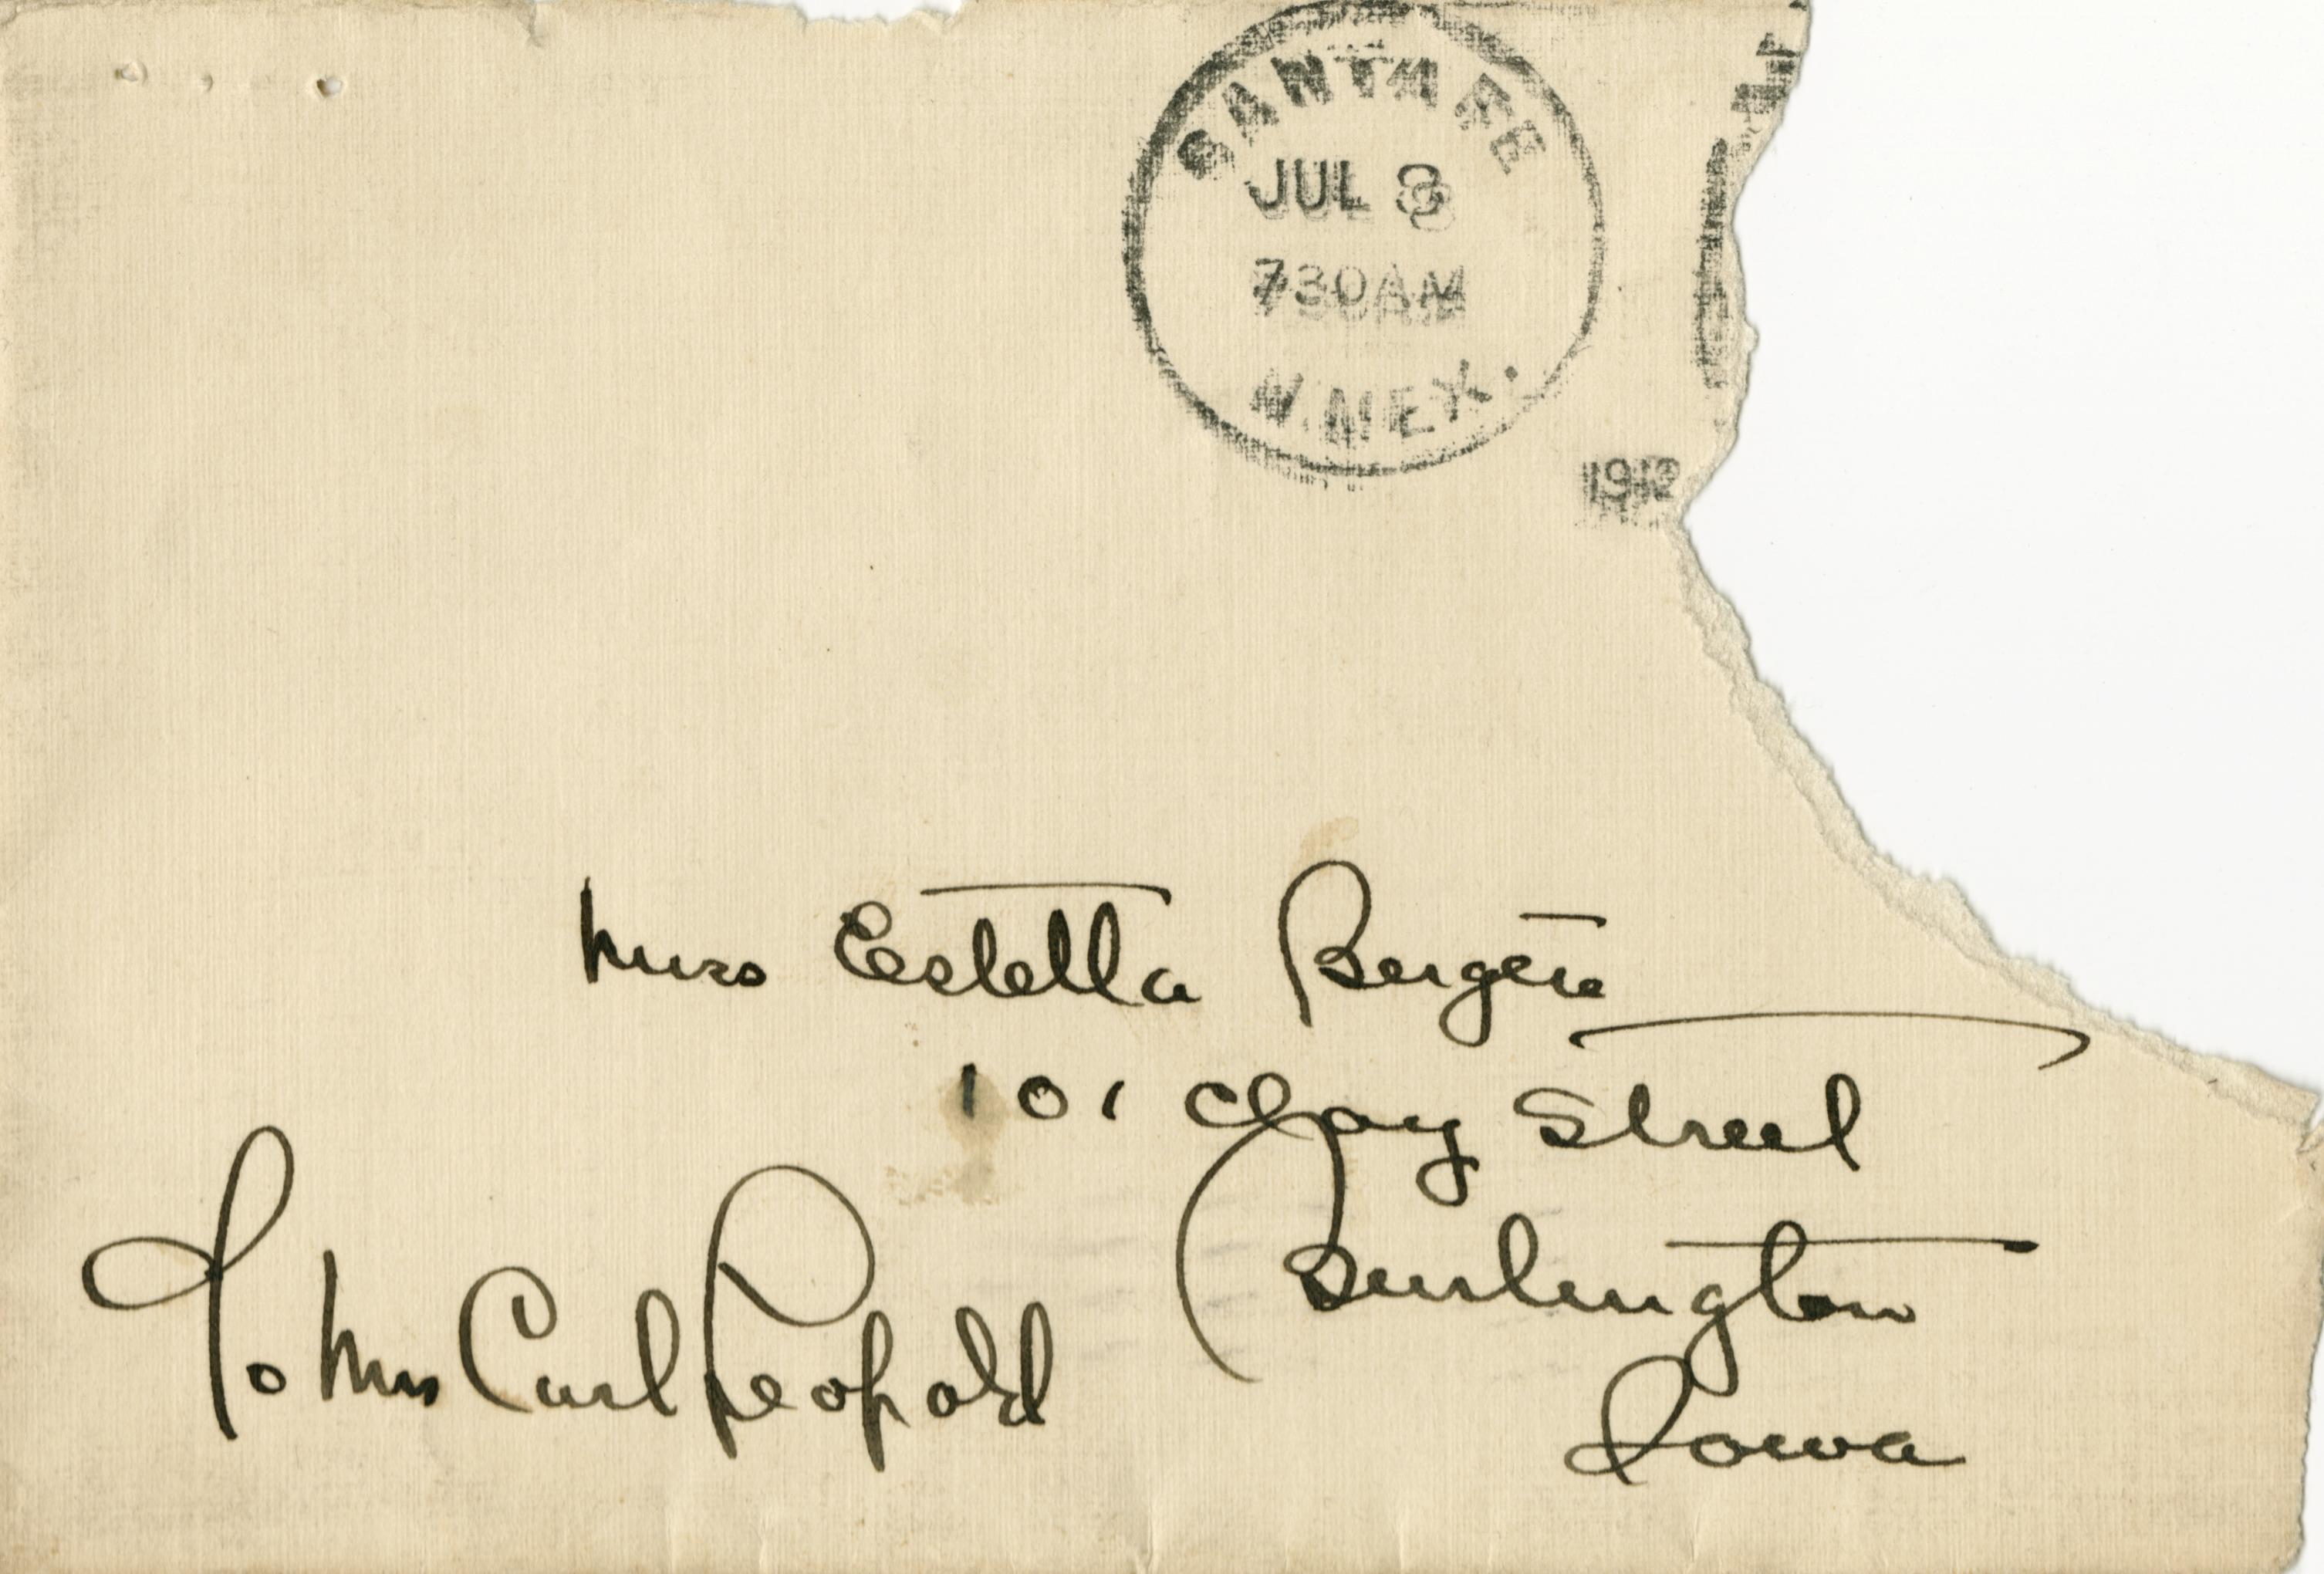 SANTA FE
JUL 8
730AM
N. MEX.
1912
Miss Estella Bergere
101 Clay Street
Burlington
Iowa
To Mrs Carl Leopold